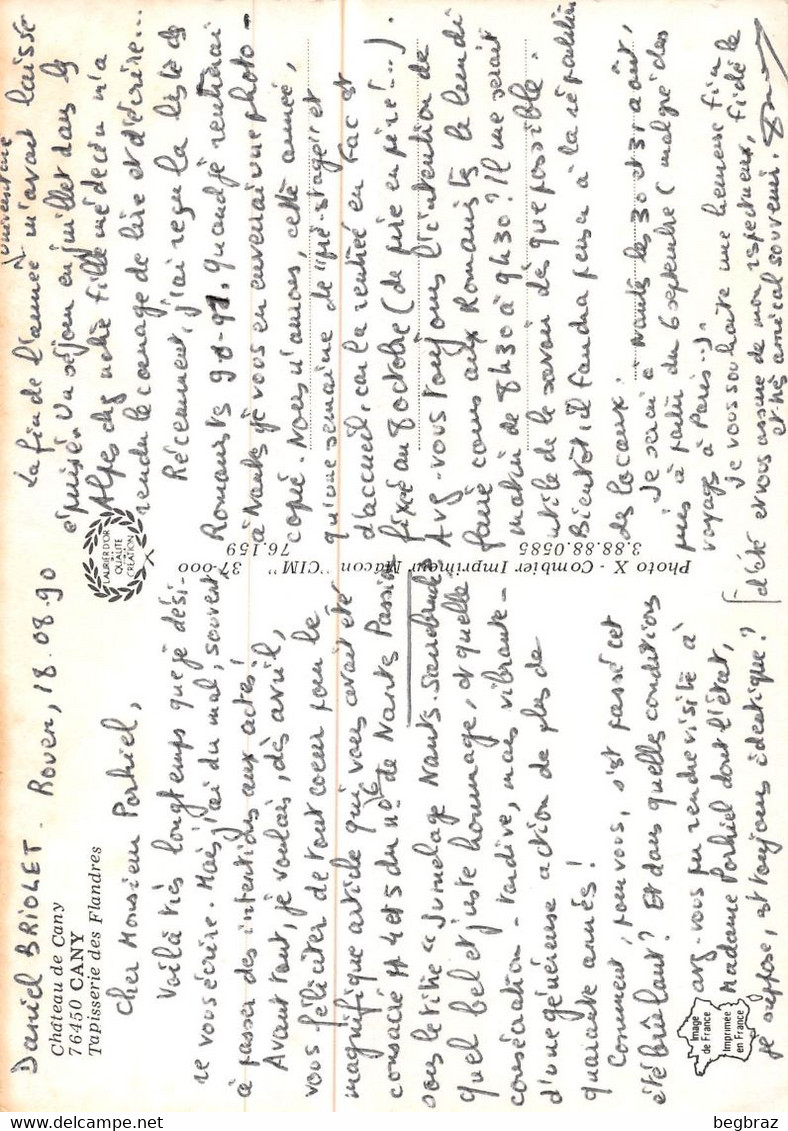 Daniel BRIOLET - Rouen, 18.08.90
Château de Cany
76450 CANY
Tapisserie des Flandres
Cher Monsieur Porhiel,
Voilà très longtemps que je dési-
re vous écrire. Mais j'ai du mal, souvent
à passer des intentions aux actes!
Avant tout, je voulais, dès avril,
vous féliciter de tout coeur pour le
magnifique article qui vous avait été
consacré pp 4 et 5 du n° de Nantes Passion
sous le titre "Jumelage Nantes-Saarbruck
quel bel et juste hommage, et quelle
consécration - tardive, mais vibrante -
d'une généreuse action de plus de
quarante années!
Comment, pour vous, s'est passé cet
été brûlant? Et dans quelles conditions
avez-vous pu rendre visite à
Madame Porhiel dont l'état,
je suppose, est toujours identique?
Image
de France
Imprimée
en France
LAURIER D'OR
DE LA
QUALITE
CREATION
Photo X - Combier Imprimeur Mâcon "CIM" 37-000
3.88.88.0585 76.159
universitaire
La fin de l'année m'avait laissé
épuisé. Un séjour en juillet dans les
Alpes chez notre fille médecin m'a
rendu le courage de lire et d'écrire...
Récemment, j'ai reçu la liste des
Romanistes 90-91. Quand je rentrerai
à Nantes je vous en enverrai une photo-
copie. Nous n'aurons, cette année,
qu'une semaine de "pré-stage" et
d'accueil, car la rentrée en Fac est
fixée au 8 octobre (de pire en pire!...).
Avez-vous toujours l'intention de
faire cours aux Romanistes le lundi
matin de 8h30 à 9h30? Il me serait
utile de le savoir dès que possible.
Bientôt il faudra penser à la répartition
des locaux.
Je serai à Nantes les 30 et 31 août,
puis à partir du 6 septembre (malgré des
voyages à Paris...).
Je vous souhaite une heureuse fin
d'été et vous assure de mon respectueux, fidèle
et très amical souvenir.
begbraz